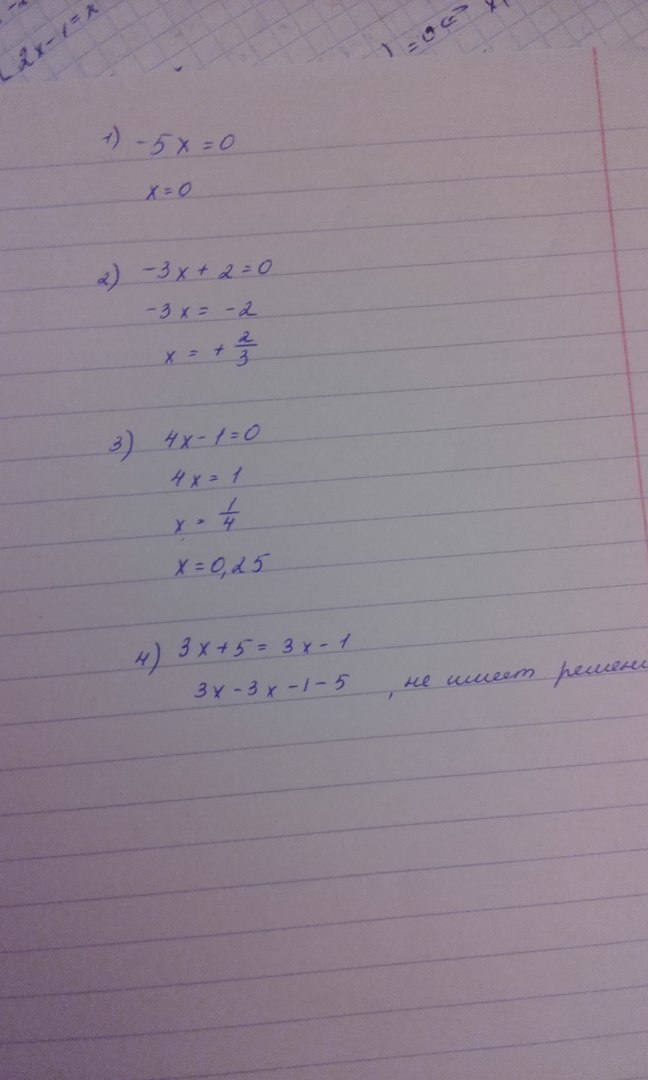 2x-1=x
1) -5x=0
x=0
2) -3x+2=0
-3x= -2
x = + 2/3
3) 4x-1=0
4x=1
x = 1/4
x=0,25
4) 3x+5= 3x-1
3x-3x-1-5 , не имеет решени